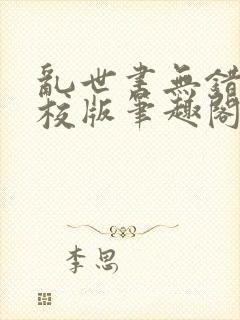 亂世書無錯
校版筆趣閣
李思